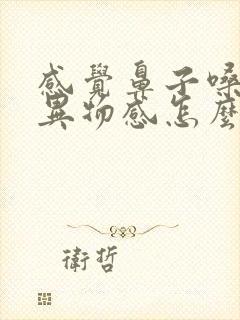 感覺鼻子嗓
異物感怎麼
衛哲